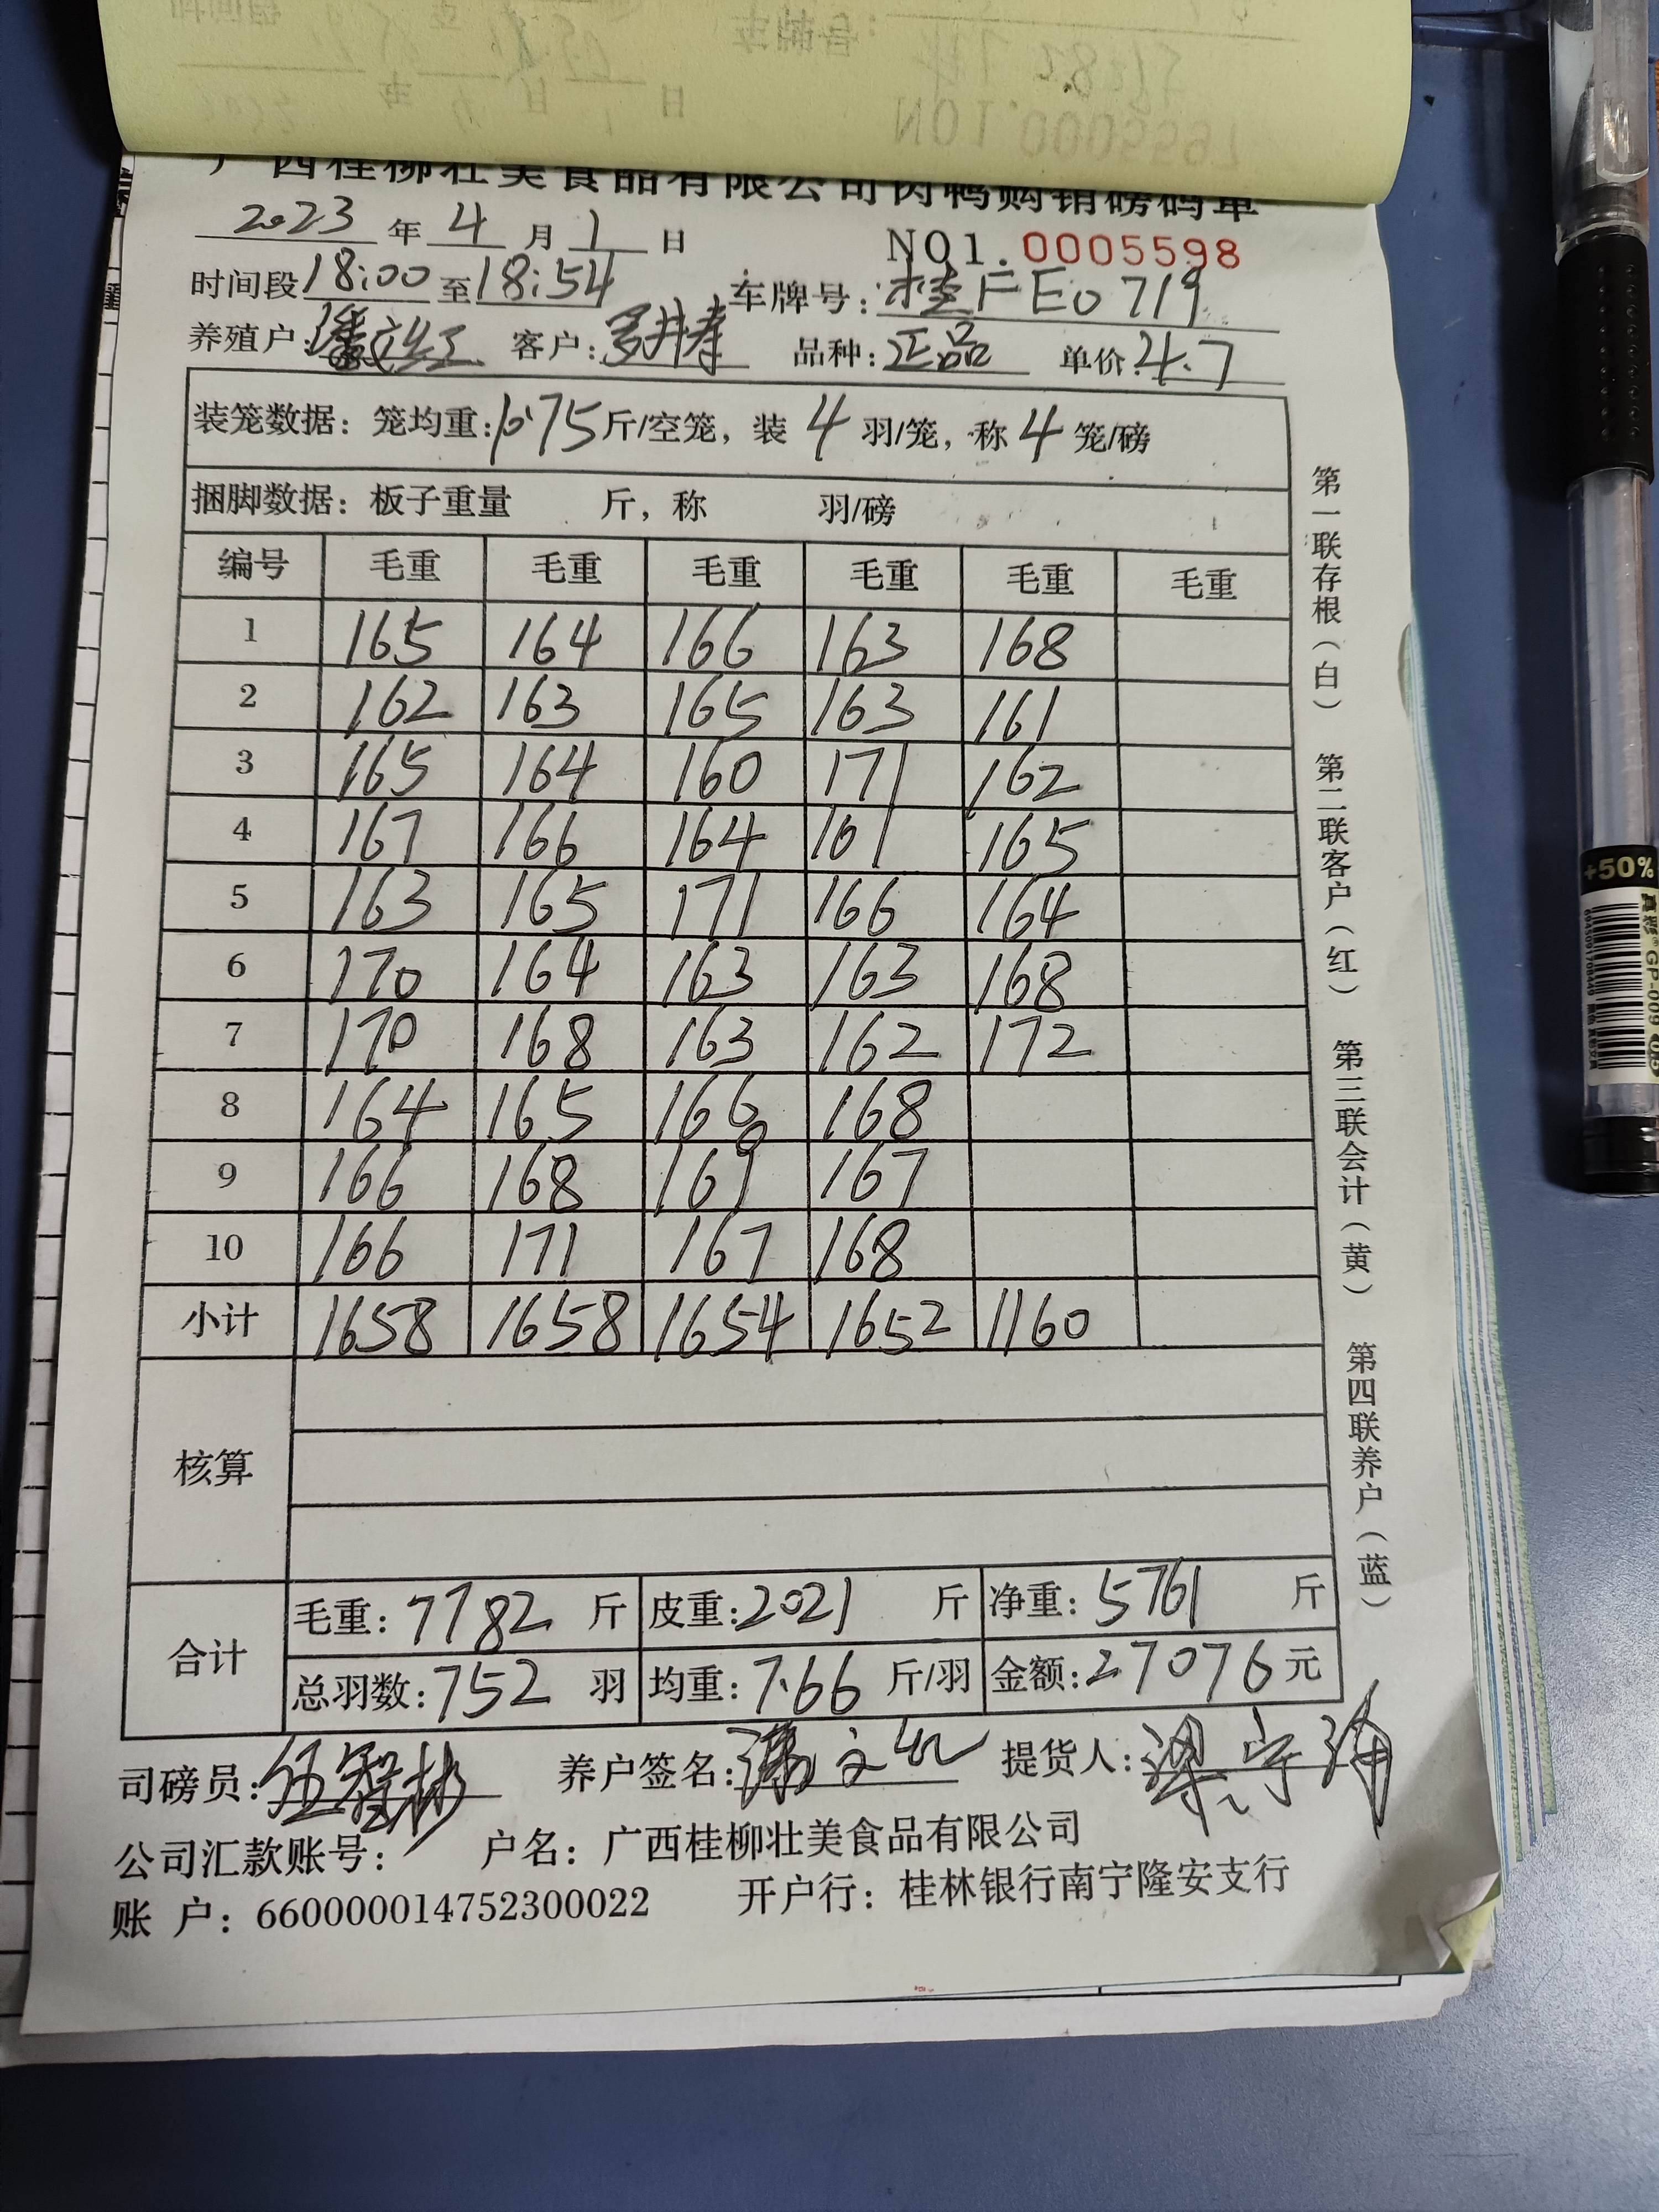 广西桂柳壮美食品有限公司肉鸭购销磅码单
2023 年 4 月 1 日 NO1.0005598
时间段 18:00 至 18:54 车牌号: 桂FE0719
养殖户: 潘文红 客户: 品种: 正品 单价: 4.7
装笼数据: 笼均重: 10.75 斤/空笼, 装 4 羽/笼, 称 4 笼/磅
捆脚数据: 板子重量 斤, 称 羽/磅
编号 毛重 毛重 毛重 毛重 毛重 毛重
1 165 164 166 163 168
2 162 163 165 163 161
3 165 164 160 171 162
4 167 166 164 161 165
5 163 165 171 166 164
6 170 164 163 163 168
7 170 168 163 162 172
8 164 165 166 168
9 166 168 169 167
10 166 171 167 168
小计 1658 1658 1654 1652 1160
核算
合计
毛重: 7782 斤 皮重: 2021 斤 净重: 5761 斤
总羽数: 752 羽 均重: 7.66 斤/羽 金额: 27076 元
司磅员: 伍智彬 养户签名: 潘文红 提货人: 梁宁
公司汇款账号: 户名: 广西桂柳壮美食品有限公司
账 户: 660000014752300022 开户行: 桂林银行南宁隆安支行
第一联存根(白) 第二联客户(红) 第三联会计(黄) 第四联养户(蓝)
+50%
GP-009